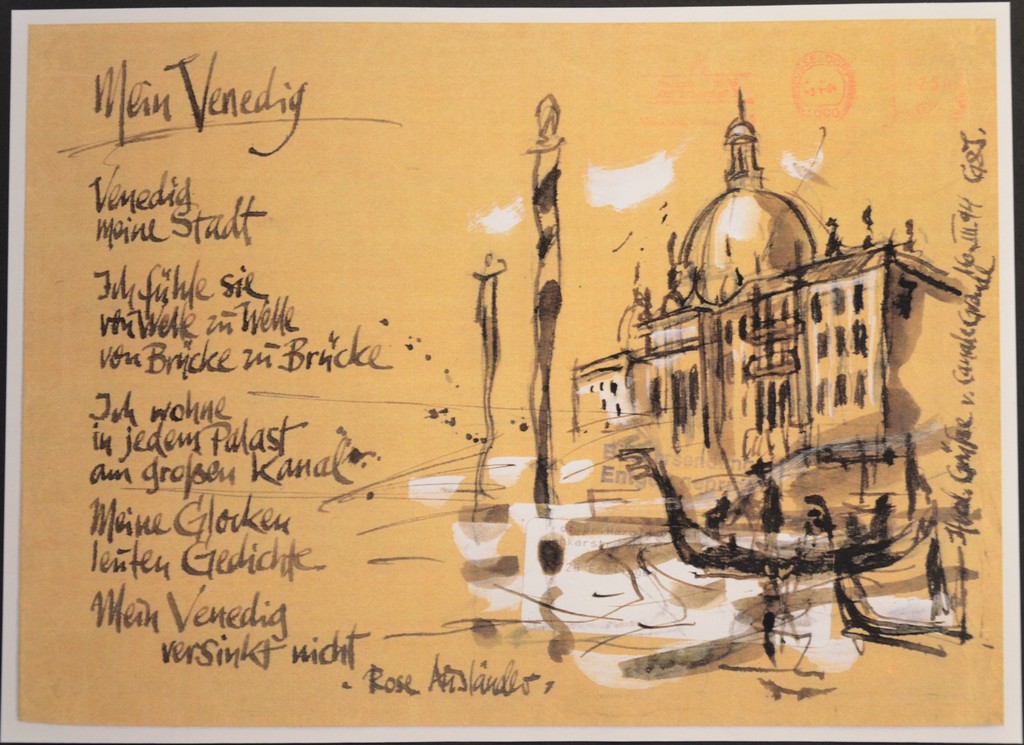 Mein Venedig
Venedig
meine Stadt
Ich fühle sie
von Welle zu Welle
von Brücke zu Brücke
Ich wohne
in jedem Palast
am großen Kanal
Meine Glocken
leuten Gedichte
Mein Venedig
versinkt nicht
- Rose Ausländer -